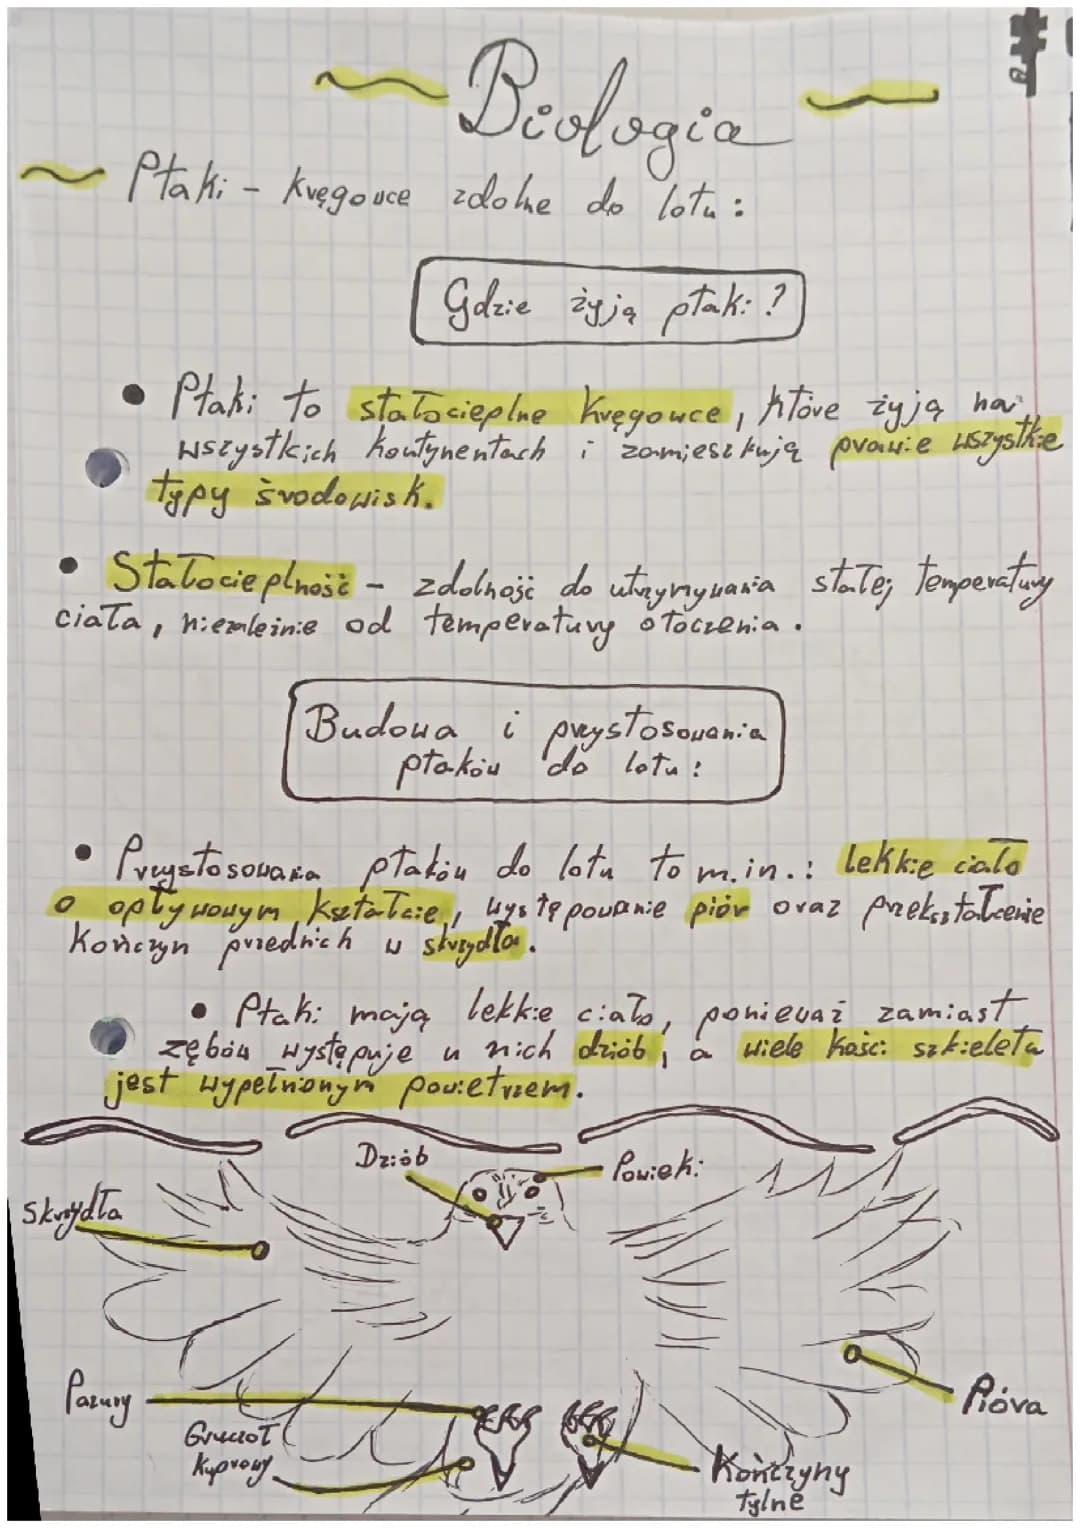 Biologia
Ptaki - kręgowce zdolne do lotu:
Gdzie żyją ptaki?
• Ptaki to stałocieplne kręgowce, które żyją na
wszystkich kontynentach i zamieszkują prawie wszystkie
typy środowisk.
• Stałocieplność - zdolność do utrzymywania stałej temperatury
ciała, niezależnie od temperatury otoczenia.
Budowa i przystosowania
ptaków do lotu:
• Przystosowania ptaków do lotu to m.in.: lekkie ciało
o opływowym kształcie, występowanie piór oraz przekształcenie
kończyn przednich w skrzydła.
• Ptaki mają lekkie ciało, ponieważ zamiast
zębów występuje u nich dziób, a wiele kości szkieletu
jest wypełnionym powietrzem.
Dziób
Powieki
Skrzydła
Pazury
Pióra
Gruczoł
kuprowy
Kończyny
tylne